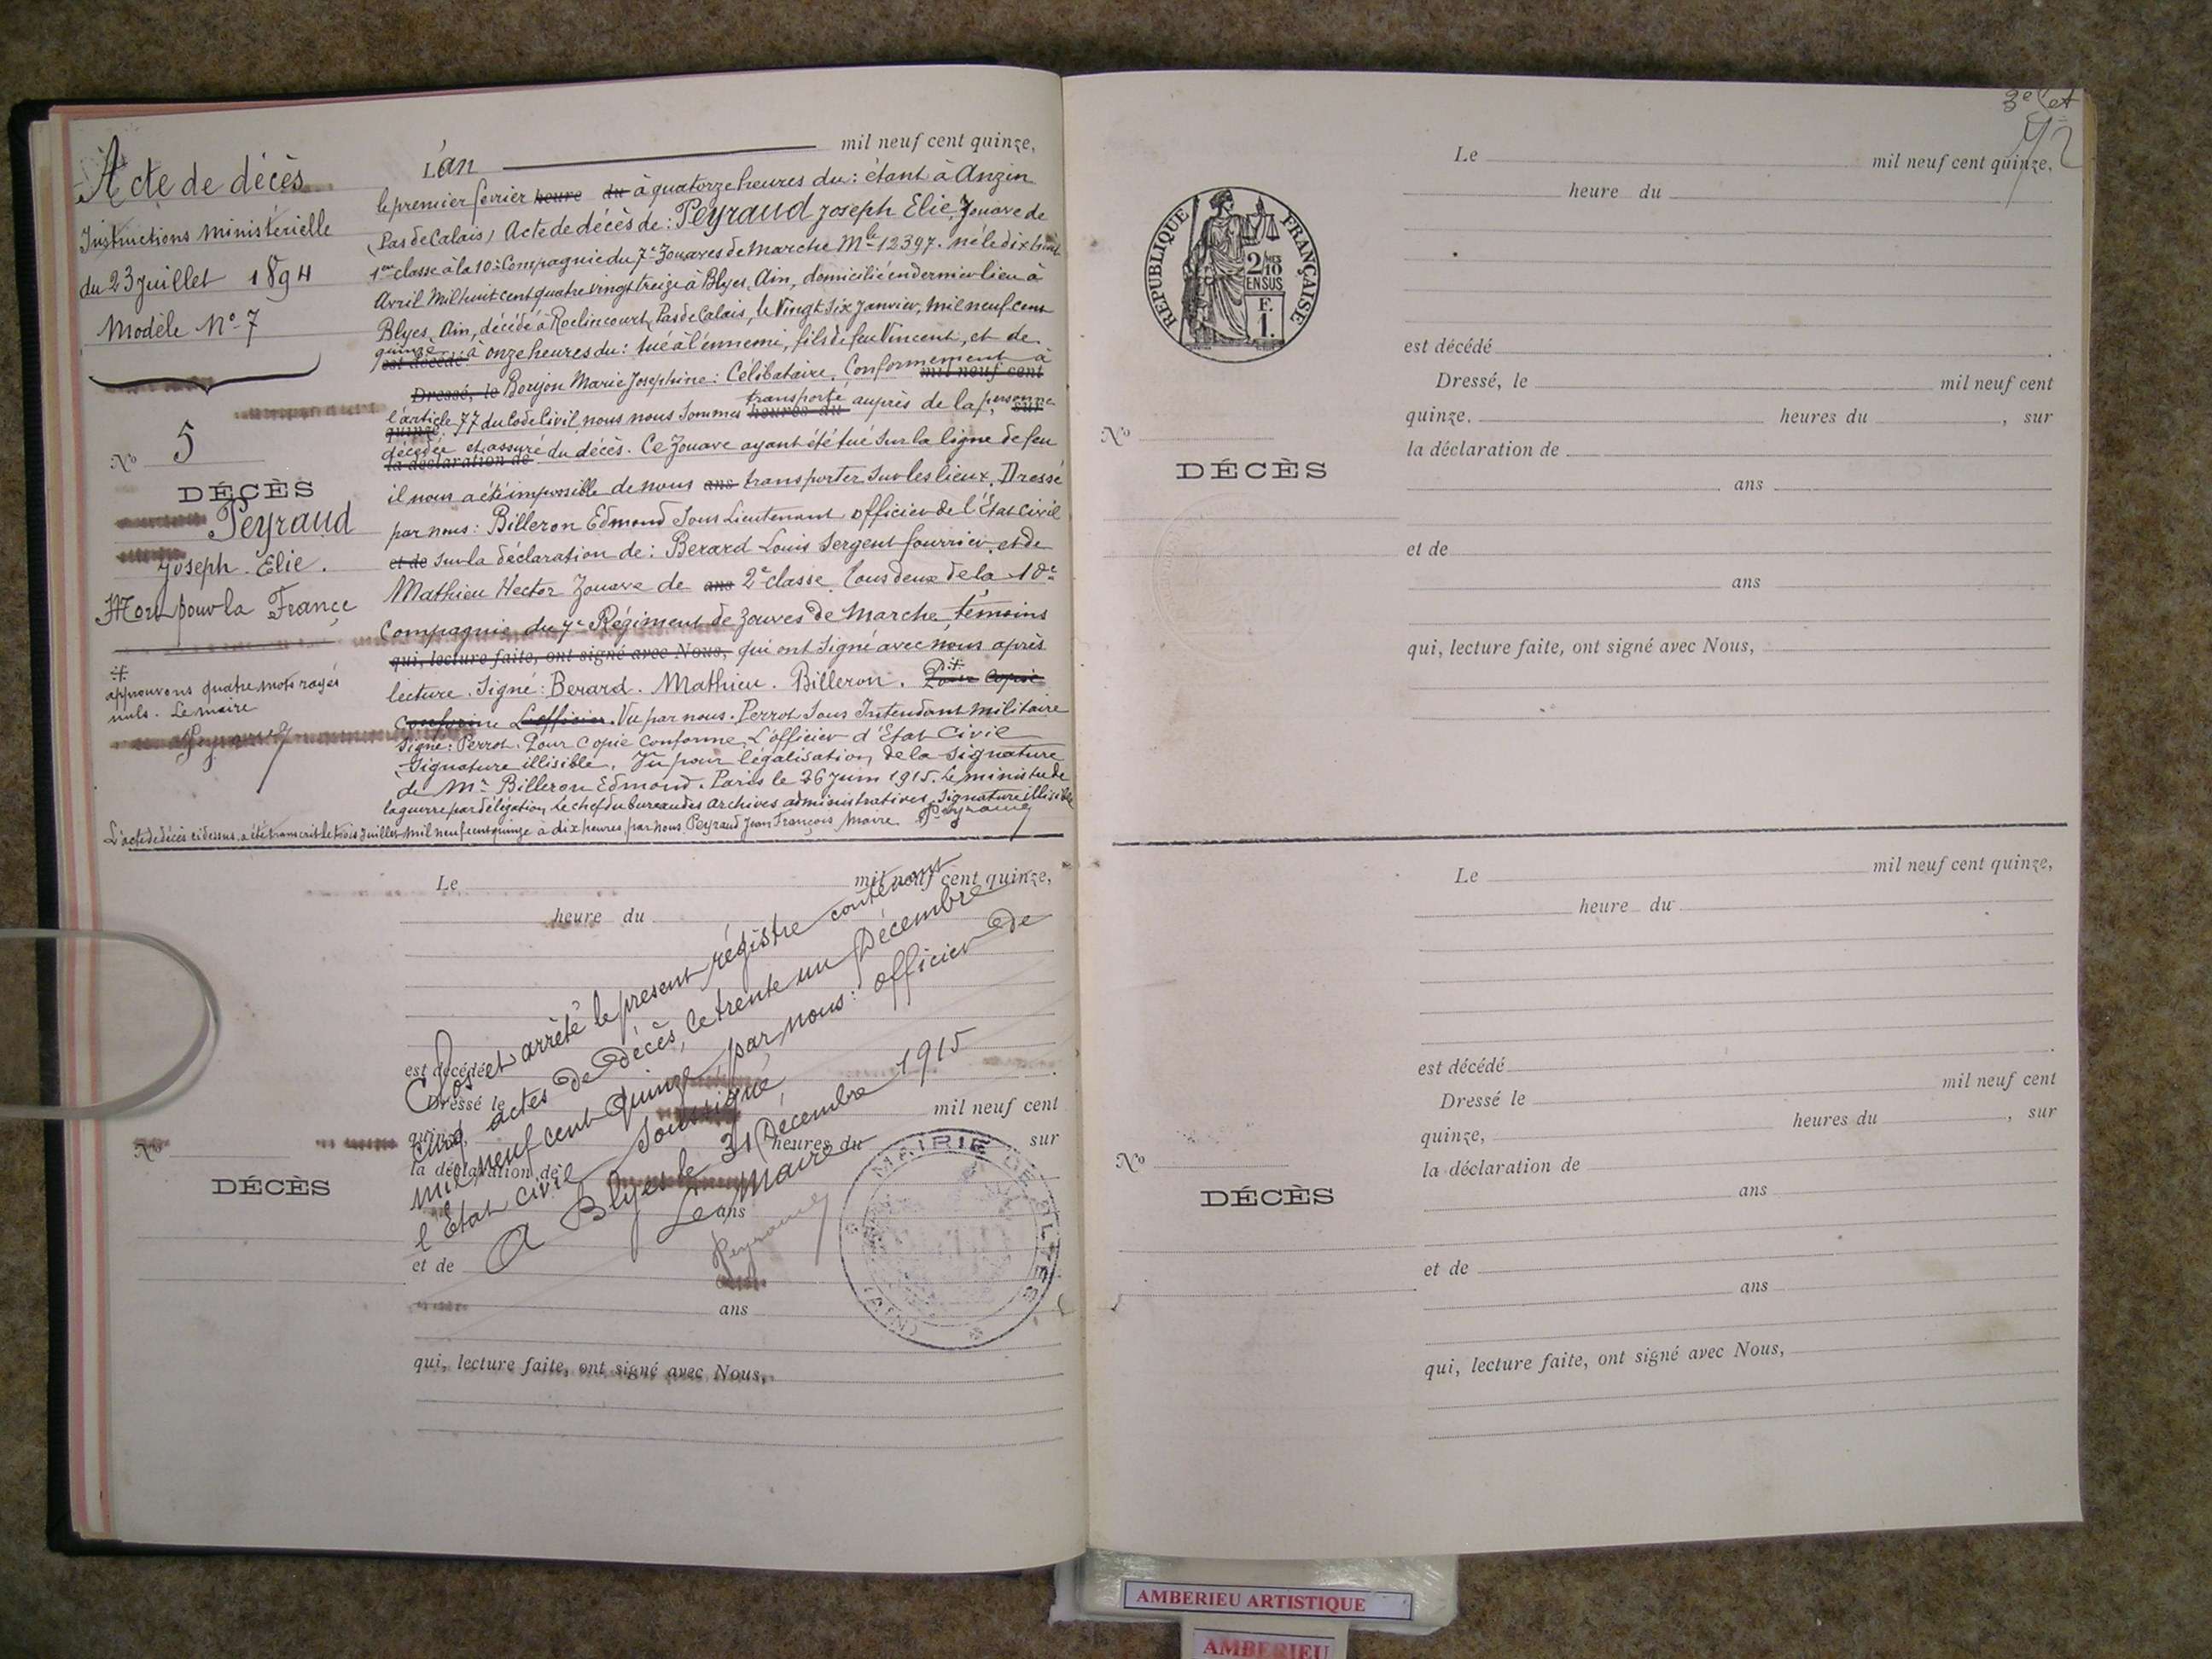 Acte de décès
Instructions ministérielle
du 23 Juillet 1894
Modèle No 7
No 5
DÉCÈS
Peyraud
Joseph Elie.
Mort pour la France
approuvons quatre mots rayés
nuls. Le maire
L'an mil neuf cent quinze,
le premier février heure du à quatorze heures du : étant à Anzin
(Pas de Calais) Acte de décès de : Peyraud Joseph Elie, Zouave de
1ere classe à la 10e Compagnie du 7e Zouaves de marche Mle 12397. né le dix huit
Avril Mil huit cent quatre vingt treize à Blyes, Ain, domicilié en dernier lieu à
Blyes, Ain, décédé à Roclincourt, Pas de Calais, le Vingt Six Janvier, mil neuf cent
quinze
est décédé à onze heures du : tué à l'ennemi, fils de feu Vincent, et de
Dressé, le Borijon Marie Josephine : Célibataire, Conformement à
mil neuf cent
transporté personne
l'article 77 du Code Civil nous nous Sommes heures du auprès de la sur
quinze
décédée et assuré du décès. Ce Zouave ayant été tué Sur la ligne de feu
la déclaration de
il nous a été impossible de nous ans transporter Sur les lieux. Dressé
par nous : Billeron Edmond Sous Lieutenant officier de l'État Civil
et de Sur la déclaration de : Berard Louis Sergent fourrier, et de
Mathieu Hector Zouave de ans 2e classe, tous deux de la 10e
Compagnie du 7e Régiment de Zouves de Marche, témoins
qui, lecture faite, ont signé avec Nous, qui ont Signé avec nous après
lecture. Signé : Berard. Mathieu. Billeron. Pour Copie
Conforme L'officier. Vu par nous. Perrot Sous Intendant militaire
Signé : Perrot. Pour Copie Conforme, L'officier d'État Civil
Signature illisible. Vu pour légalisation, de la Signature
de Mr Billeron Edmond. Paris le 26 Juin 1915. Le ministre de
la guerre par délégation, Le chef du bureau des archives administratives, Signature illisible
L'acte de décès ci dessus a été transcrit le trois Juillet mil neuf cent quinze à dix heures, par nous Peyraud Jean François, Maire
Peyraud
Le mil neuf cent quinze,
heure du
est décédé
Dressé le mil neuf cent
quinze, heures du sur
la déclaration de
ans
et de
ans
qui, lecture faite, ont signé avec Nous,
No
DÉCÈS
Clos et arrêté le présent régistre contenant
cinq actes de décès, le trente un Décembre
mil neuf cent quinze, par nous : officier de
l'État civil Soussigné
A Blyes le 31 Décembre 1915
Le Maire
Peyraud
MAIRIE DE BLYES
(AIN)
3e
RÉPUBLIQUE FRANÇAISE
2/10
EN SUS
F.
1.
Le mil neuf cent quinze,
heure du
est décédé
Dressé, le mil neuf cent
quinze, heures du , sur
la déclaration de
ans
No
DÉCÈS
et de
ans
qui, lecture faite, ont signé avec Nous,
Le mil neuf cent quinze,
heure du
est décédé
Dressé le mil neuf cent
quinze, heures du , sur
la déclaration de
ans
No
DÉCÈS
et de
ans
qui, lecture faite, ont signé avec Nous,
AMBERIEU ARTISTIQUE
AMBERIEU